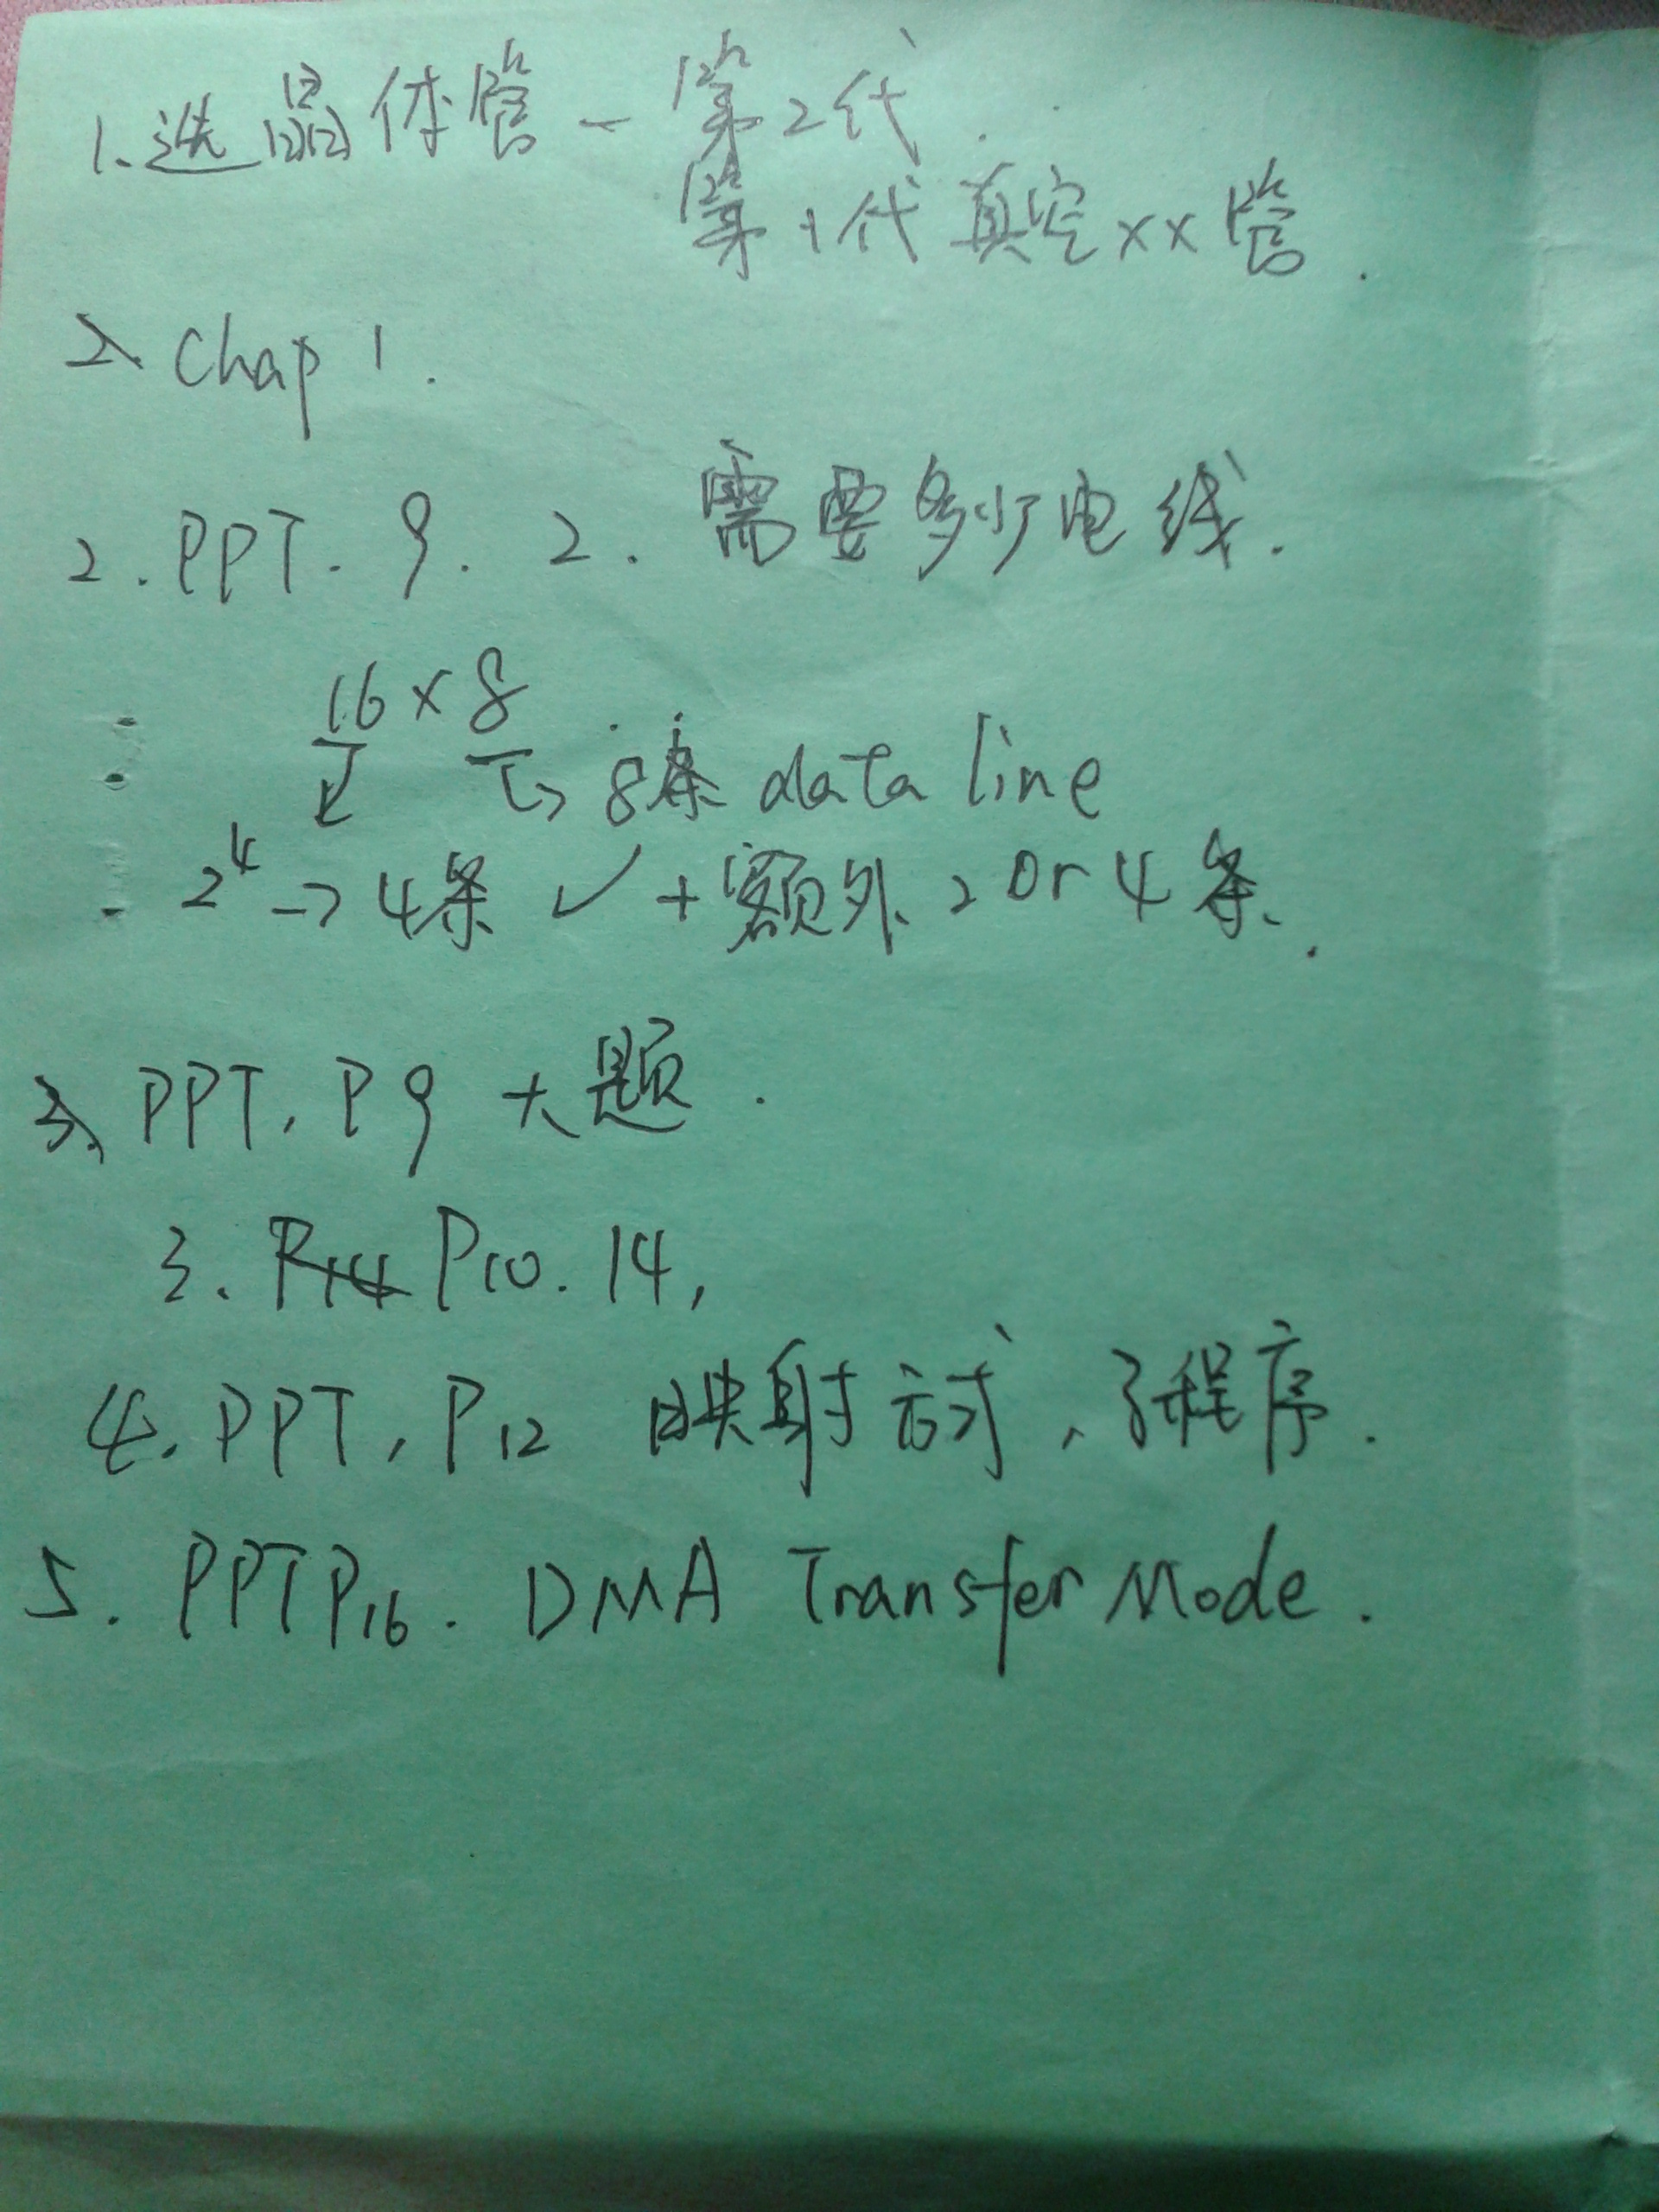 1、选晶体管 - 第2代.
第1代 真空 xx 管.
2、Chap 1.
2. PPT. 9. 2. 需要多少电线.
16 × 8
8条 data line
2⁴ → 4条 ✓ + 额外 2 or 4 条.
3、PPT, P9 大题.
3. P14 P10. 14,
4. PPT, P12 映射方式, 子程序.
5. PPT P16. DMA Transfer Mode.